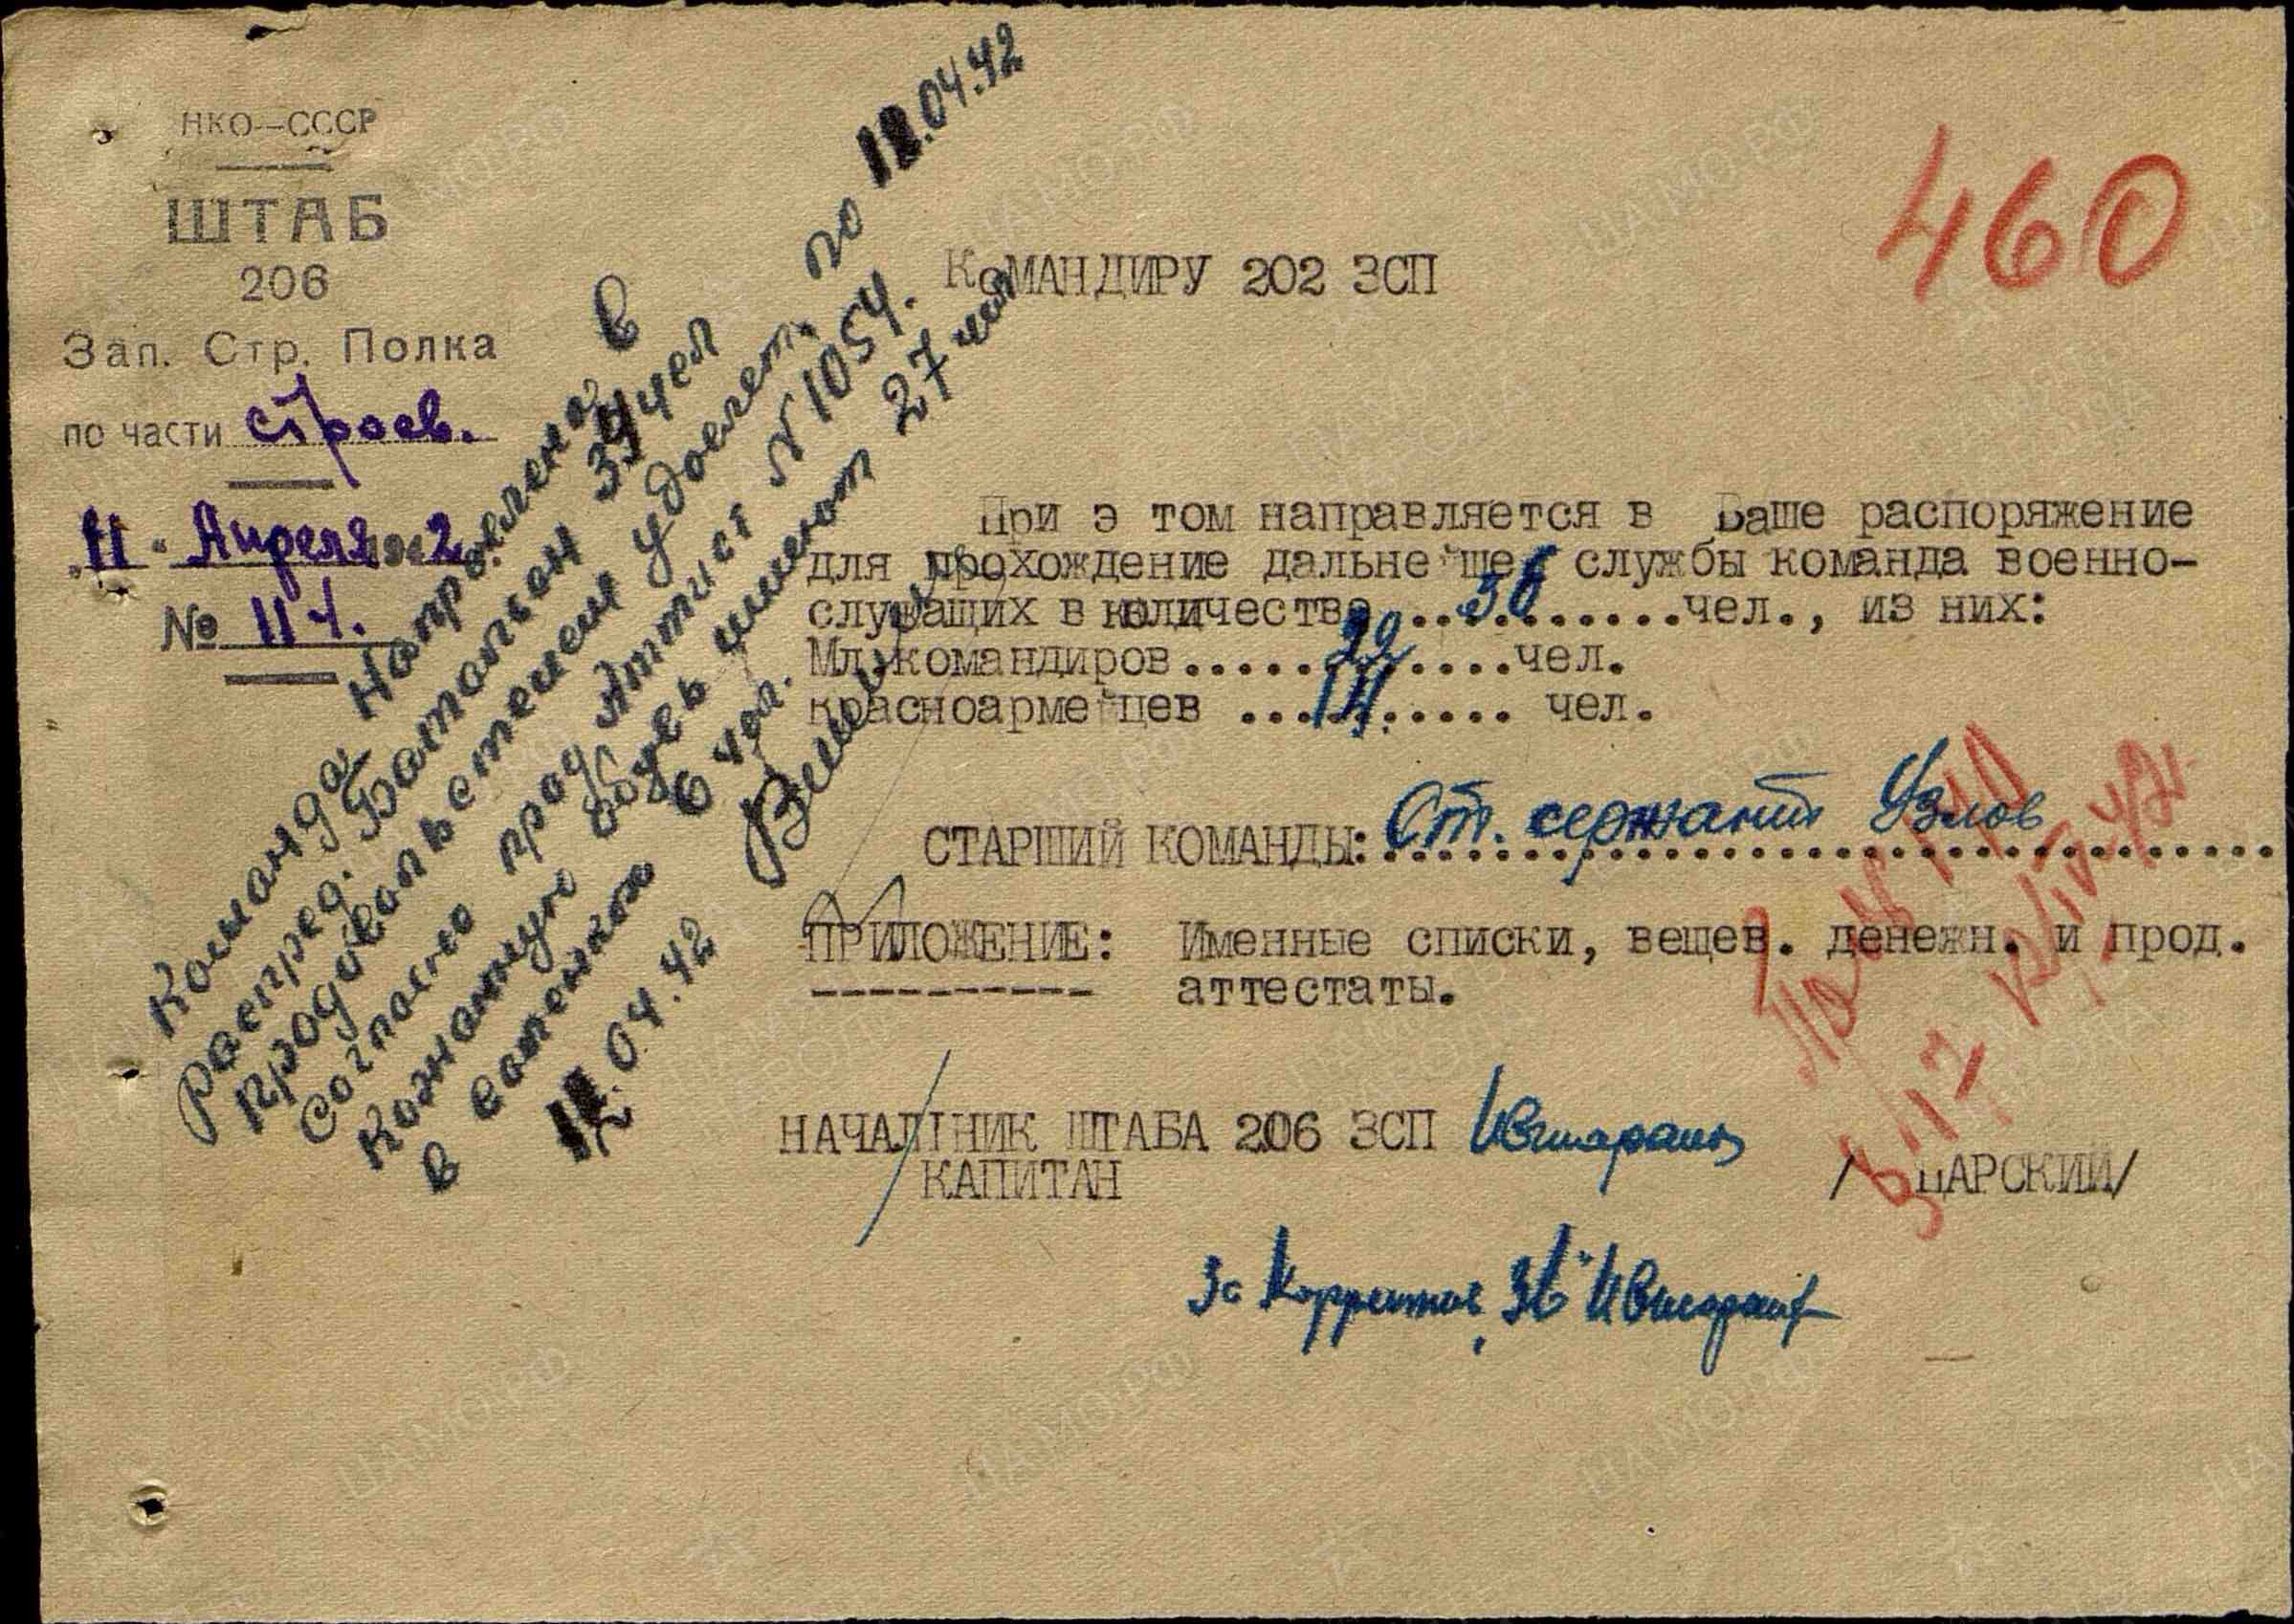 НКО—СССР
ШТАБ
206
Зап. Стр. Полка
по части строев.
"11" Апреля 1942
№ 114.
460
КОМАНДИРУ 202 ЗСП
При э том направляется в Ваше распоряжение
для прохождение дальне ше службы команда военно-
служащих в количестве ..36..........чел., из них:
Мл.командиров.....22.....чел.
красноарме цев ...14....... чел.
СТАРШИЙ КОМАНДЫ: Ст. сержант Узлов
ПРИЛОЖЕНИЕ: Именные списки, вещев. денежн. и прод.
аттестаты.
НАЧАЛ НИК ШТАБА 206 ЗСП
КАПИТАН / ЦАРСКИЙ/
За 36
Команда направлена в
Распред. Батальон 34 чел
продовольствием удовлет. по 12.04.42
Согласно прод Аттист № 1054.
Кожаную обувь имеют 27 чел
в сапогах 6 чел.
12.04.42